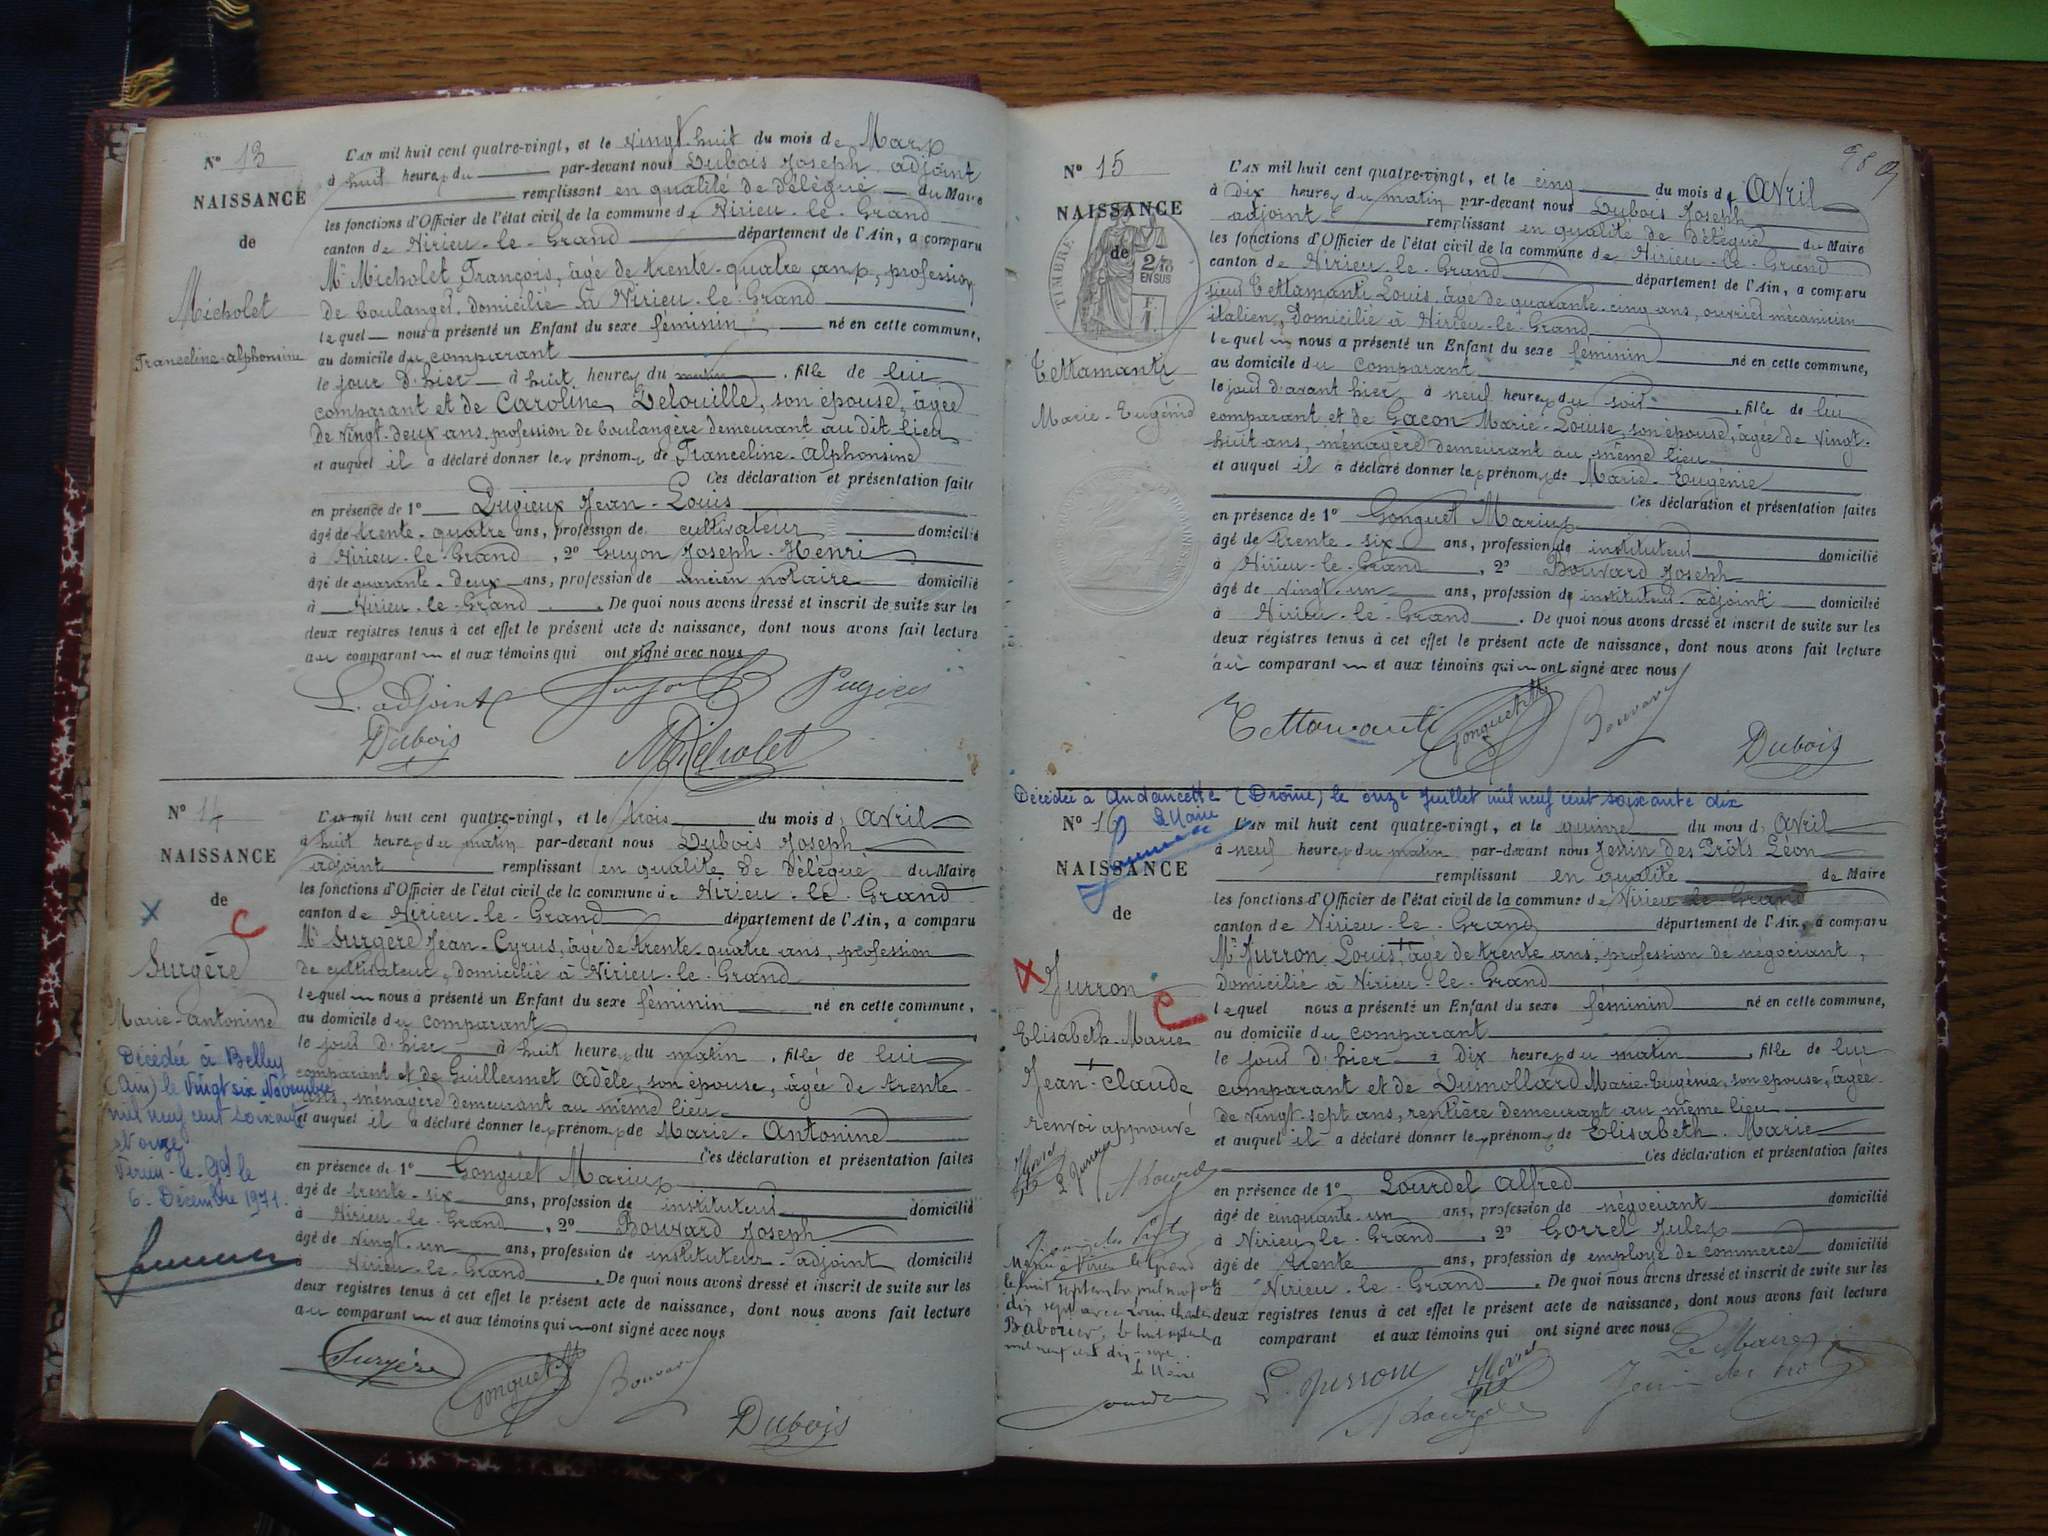 N° 13
NAISSANCE
de
Micholet
Franceline-alphonsine
L'AN mil huit cent quatre-vingt, et le vingt-huit du mois de Mars
à huit heures du par-devant nous Dubois Joseph, adjoint
remplissant en qualité de délégué du Maire
les fonctions d'Officier de l'état civil de la commune de Virieu-le-Grand
canton de Virieu-le-Grand département de l'Ain, a comparu
Mr Micholet, François, âgé de trente-quatre ans, profession
de boulanger, domicilié à Virieu-le-Grand
lequel nous a présenté un Enfant du sexe féminin né en cette commune,
au domicile du comparant
le jour d'hier à huit heures du matin, fille de lui
comparant et de Caroline Delouille, son épouse, âgée
de vingt-deux ans, profession de boulangère demeurant au dit lieu
et auquel il a déclaré donner les prénoms de Franceline-alphonsine
Ces déclaration et présentation faites
en présence de 1° Dugieux Jean-Louis
âgé de trente-quatre ans, profession de cultivateur domicilié
à Virieu-le-Grand, 2° Guyon Joseph-Henri
âgé de quarante-deux ans, profession de ancien notaire domicilié
à Virieu-le-Grand. De quoi nous avons dressé et inscrit de suite sur les
deux registres tenus à cet effet le présent acte de naissance, dont nous avons fait lecture
au comparant et aux témoins qui ont signé avec nous
L'adjoint
Dubois
Micholet
N° 14
NAISSANCE
de
Surgère
Marie-antonine
Décédée à Belley
(Ain) le vingt six Novembre
mil neuf cent soixante
et onze
Virieu-le-Gd le
6 Décembre 1971.
L'AN mil huit cent quatre-vingt, et le trois du mois d'avril
à huit heures du matin par-devant nous Dubois Joseph
adjoint remplissant en qualité de délégué du Maire
les fonctions d'Officier de l'état civil de la commune de Virieu-le-Grand
canton de Virieu-le-Grand département de l'Ain, a comparu
Mr Surgère Jean-Cyrus, âgé de trente-quatre ans, profession
de cultivateur, domicilié à Virieu-le-Grand
lequel nous a présenté un Enfant du sexe féminin né en cette commune,
au domicile du comparant
le jour d'hier à huit heures du matin, fille de lui
comparant et de Guillermet Adèle, son épouse, âgée de trente
ans, ménagère demeurant au même lieu
et auquel il a déclaré donner les prénoms de Marie-Antonine
Ces déclaration et présentation faites
en présence de 1° Gonguet Marius
âgé de trente-six ans, profession de instituteur domicilié
à Virieu-le-Grand, 2° Bouvard Joseph
âgé de vingt-un ans, profession de instituteur-adjoint domicilié
à Virieu-le-Grand. De quoi nous avons dressé et inscrit de suite sur les
deux registres tenus à cet effet le présent acte de naissance, dont nous avons fait lecture
au comparant et aux témoins qui ont signé avec nous
Surgère
Gonguet M
Bouvard
Dubois
N° 15
NAISSANCE
de
TIMBRE
2/10
EN SUS
Tettamanti
Marie-Eugénie
L'AN mil huit cent quatre-vingt, et le cinq du mois d'avril
à dix heures du matin par-devant nous Dubois Joseph
adjoint remplissant en qualité de délégué du Maire
les fonctions d'Officier de l'état civil de la commune de Virieu-le-Grand
canton de Virieu-le-Grand département de l'Ain, a comparu
sieur Tettamanti Louis, âgé de quarante-cinq ans, ouvrier mécanicien
italien, domicilié à Virieu-le-Grand
lequel nous a présenté un Enfant du sexe féminin né en cette commune,
au domicile du comparant
le jour d'avant hier à neuf heures du soir, fille de lui
comparant et de Gacon Marie-Louise, son épouse, âgée de vingt-
huit ans, ménagère demeurant au même lieu
et auquel il a déclaré donner les prénoms de Marie-Eugénie
Ces déclaration et présentation faites
en présence de 1° Gonguet Marius
âgé de trente-six ans, profession de instituteur domicilié
à Virieu-le-Grand, 2° Bouvard Joseph
âgé de vingt-un ans, profession de instituteur-adjoint domicilié
à Virieu-le-Grand. De quoi nous avons dressé et inscrit de suite sur les
deux registres tenus à cet effet le présent acte de naissance, dont nous avons fait lecture
au comparant et aux témoins qui ont signé avec nous
Tettamanti
Gonguet M
Bouvard
Dubois
Décédée à Andancette (Drôme) le onze Juillet mil neuf cent soixante dix
Le Maire
N° 16
NAISSANCE
de
Jurron
Elisabeth-Marie
Jean-Claude
renvoi approuvé
Mariée à Virieu le Grand
le huit septembre mil neuf cent
dix sept avec Louis Charles
Baborier, le huit septembre
mil neuf cent dix-sept
Le Maire
L'AN mil huit cent quatre-vingt, et le quinze du mois d'avril
à neuf heures du matin par-devant nous Jenin des Prôts Léon
remplissant en qualité de Maire
les fonctions d'Officier de l'état civil de la commune de Virieu-le-Grand
canton de Virieu-le-Grand département de l'Ain, a comparu
Mr Jurron Louis, âgé de trente ans, profession de négociant,
domicilié à Virieu-le-Grand
lequel nous a présenté un Enfant du sexe féminin né en cette commune,
au domicile du comparant
le jour d'hier à dix heures du matin, fille de lui
comparant et de Dumollard Marie-Eugénie, son épouse, âgée
de vingt-sept ans, rentière demeurant au même lieu
et auquel il a déclaré donner les prénoms de Elisabeth-Marie
Ces déclaration et présentation faites
en présence de 1° Lourdel Alfred
âgé de cinquante-un ans, profession de négociant domicilié
à Virieu-le-Grand, 2° Gorrel Jules
âgé de trente ans, profession de employé de commerce domicilié
à Virieu-le-Grand. De quoi nous avons dressé et inscrit de suite sur les
deux registres tenus à cet effet le présent acte de naissance, dont nous avons fait lecture
a comparant et aux témoins qui ont signé avec nous
Le Maire
L. Jurron